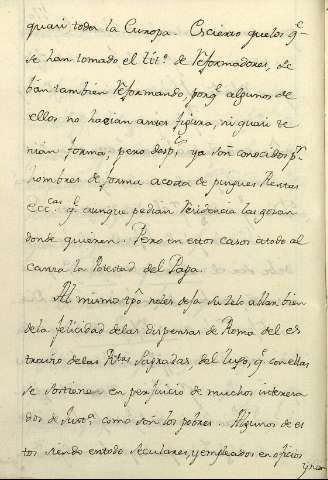 quasi toda la Europa. Es cierto que los q.e
se han tomado el tit.o de Reformadores, se
ban tambien reformando, porq.e algunos de
ellos no hacian antes figura, ni quasi te
nian forma, pero desp.s ya son conocidos p.r
hombres de forma a costa de pingues Rentas
ecc.cas q.e aunque pedian Residencia las gozan
donde quieren. Pero en estos casos a todo al
canza la Potestad del Papa.
Al mismo tpõ no les deja su zelo a llan bien
de la felicidad de las dispensas de Roma del es
travio de las R.tas Sagradas, del luxo, q.e con ellas
se sostiene en perjuicio de muchos interesa
dos de Just.a como son los pobres. Algunos de es
tos siendo en todo seculares, y empleados en oficios